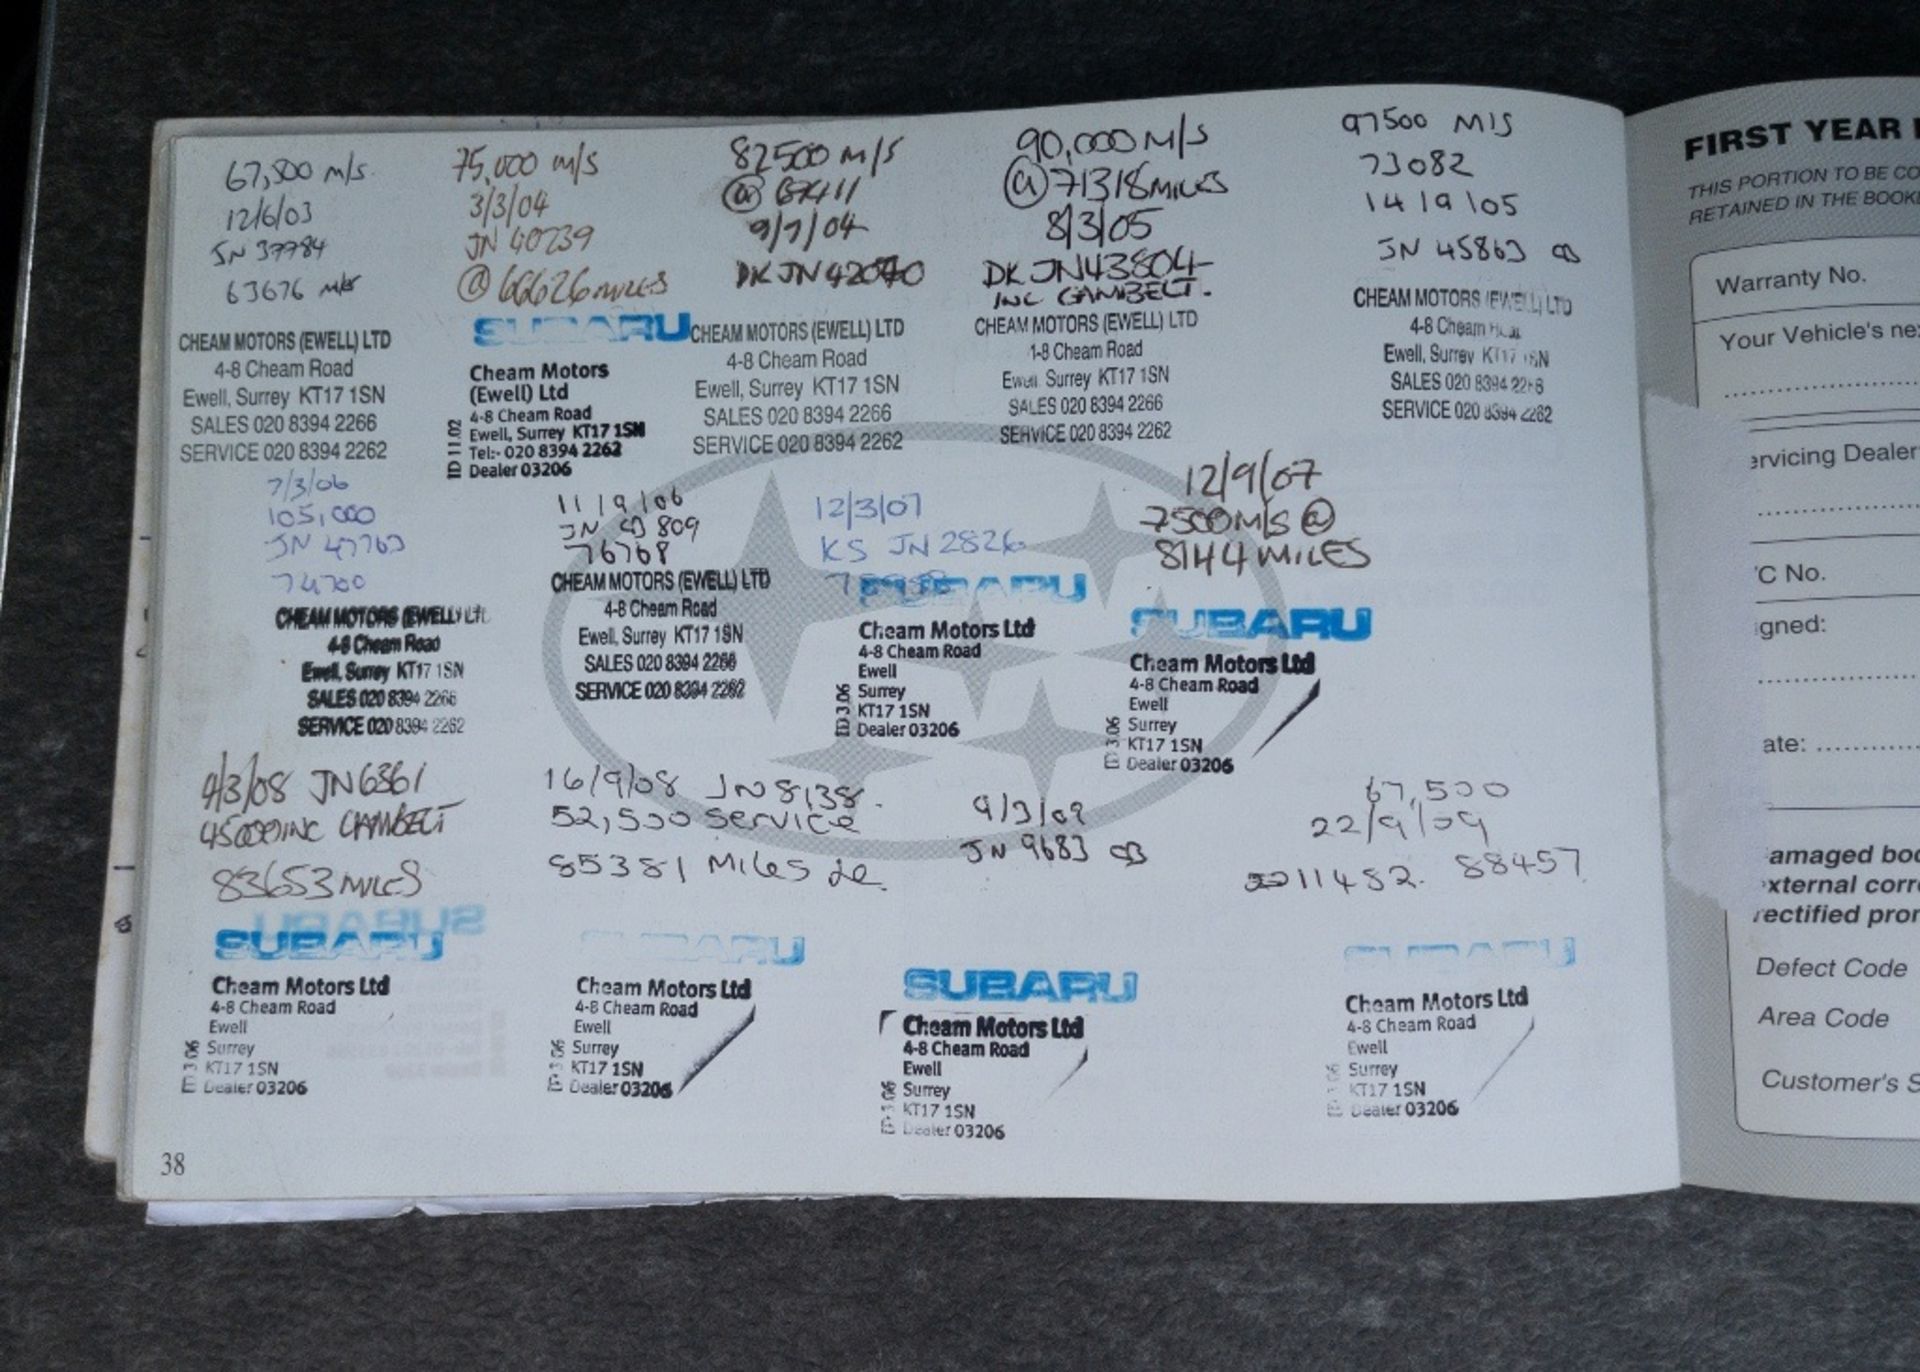 67,500 m/s.
12/6/03
JN 37784
63676 m/s
CHEAM MOTORS (EWELL) LTD
4-8 Cheam Road
Ewell, Surrey KT17 1SN
SALES 020 8394 2266
SERVICE 020 8394 2262
75,000 m/s
3/3/04
JN 40239
@ 66626 MILES
SUBARU
Cheam Motors
(Ewell) Ltd
4-8 Cheam Road
Ewell, Surrey KT17 1SN
Tel:- 020 8394 2262
Dealer 03206
ID 11.02
82500 M/S
@ 67411
9/7/04
DK JN 42070
CHEAM MOTORS (EWELL) LTD
4-8 Cheam Road
Ewell, Surrey KT17 1SN
SALES 020 8394 2266
SERVICE 020 8394 2262
90,000 M/S
@ 71318 MILES
8/3/05
DK JN43804
INC CAMBELT.
CHEAM MOTORS (EWELL) LTD
1-8 Cheam Road
Ewell, Surrey KT17 1SN
SALES 020 8394 2266
SERVICE 020 8394 2262
97500 MIS
73082
14/9/05
JN 45863 CB
CHEAM MOTORS (EWELL) LTD
4-8 Cheam
Ewell, Surrey KT17 1SN
SALES 020 8394 2266
SERVICE 020 8394 2262
7/3/06
105,000
JN 47763
74700
CHEAM MOTORS (EWELL) LTD
4-8 Cheam Road
Ewell, Surrey KT17 1SN
SALES 020 8394 2266
SERVICE 020 8394 2262
11/9/06
JN 809
76768
CHEAM MOTORS (EWELL) LTD
4-8 Cheam Road
Ewell, Surrey KT17 1SN
SALES 020 8394 2266
SERVICE 020 8394 2262
12/3/07
KS JN 2826
SUBARU
Cheam Motors Ltd
4-8 Cheam Road
Ewell
Surrey
KT17 1SN
Dealer 03206
ID 3.06
12/9/07
7500M/S @
8144 MILES
SUBARU
Cheam Motors Ltd
4-8 Cheam Road
Ewell
Surrey
KT17 1SN
Dealer 03206
ID 3.06
9/3/08 JN6361
45000 INC CAMBELT
83653 MILES
SUBARU
Cheam Motors Ltd
4-8 Cheam Road
Ewell
Surrey
KT17 1SN
Dealer 03206
ID 3.06
16/9/08 JN 8138.
52,500 Service
85381 Miles
SUBARU
Cheam Motors Ltd
4-8 Cheam Road
Ewell
Surrey
KT17 1SN
Dealer 03206
ID 3.06
9/3/09
JN 9683 CB
SUBARU
Cheam Motors Ltd
4-8 Cheam Road
Ewell
Surrey
KT17 1SN
Dealer 03206
ID 3.06
67,500
22/9/09
11482. 88457
SUBARU
Cheam Motors Ltd
4-8 Cheam Road
Ewell
Surrey
KT17 1SN
Dealer 03206
38
FIRST YEAR
THIS PORTION TO BE CO
RETAINED IN THE BOOK
Warranty No.
Your Vehicle's nex
ervicing Dealer
C No.
igned:
ate:
amaged bod
xternal corr
rectified pror
Defect Code
Area Code
Customer's S